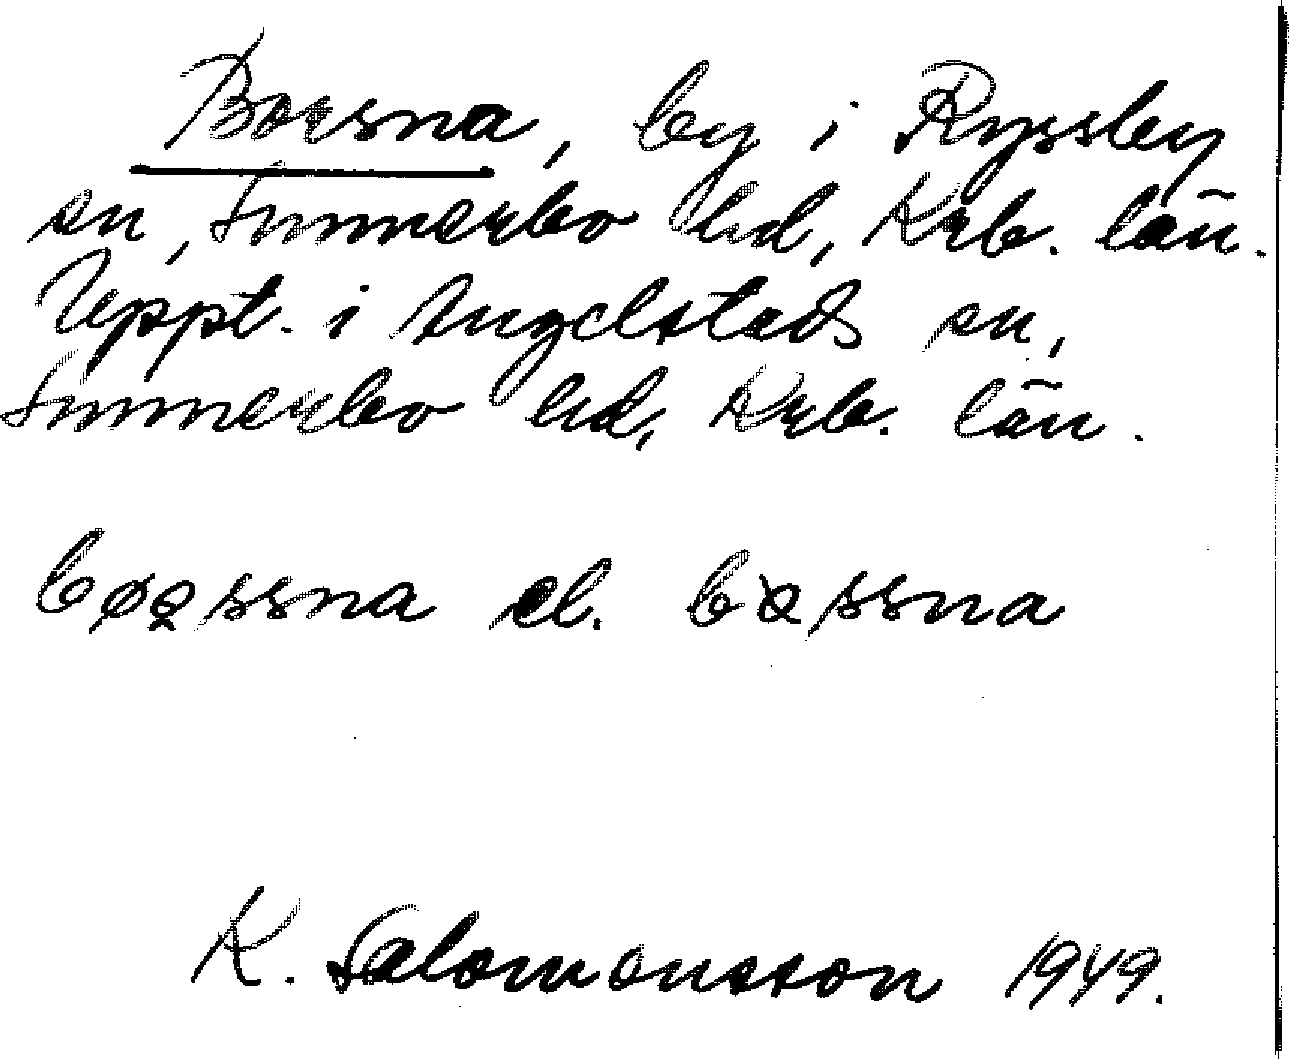 Borsna, by i Ryssby
sn, Sunnerbo hd, Krb. län.
Uppt. i Angelstads sn,
Sunnerbo hd, Krb. län.
el.
K. Salomonsson 1949.